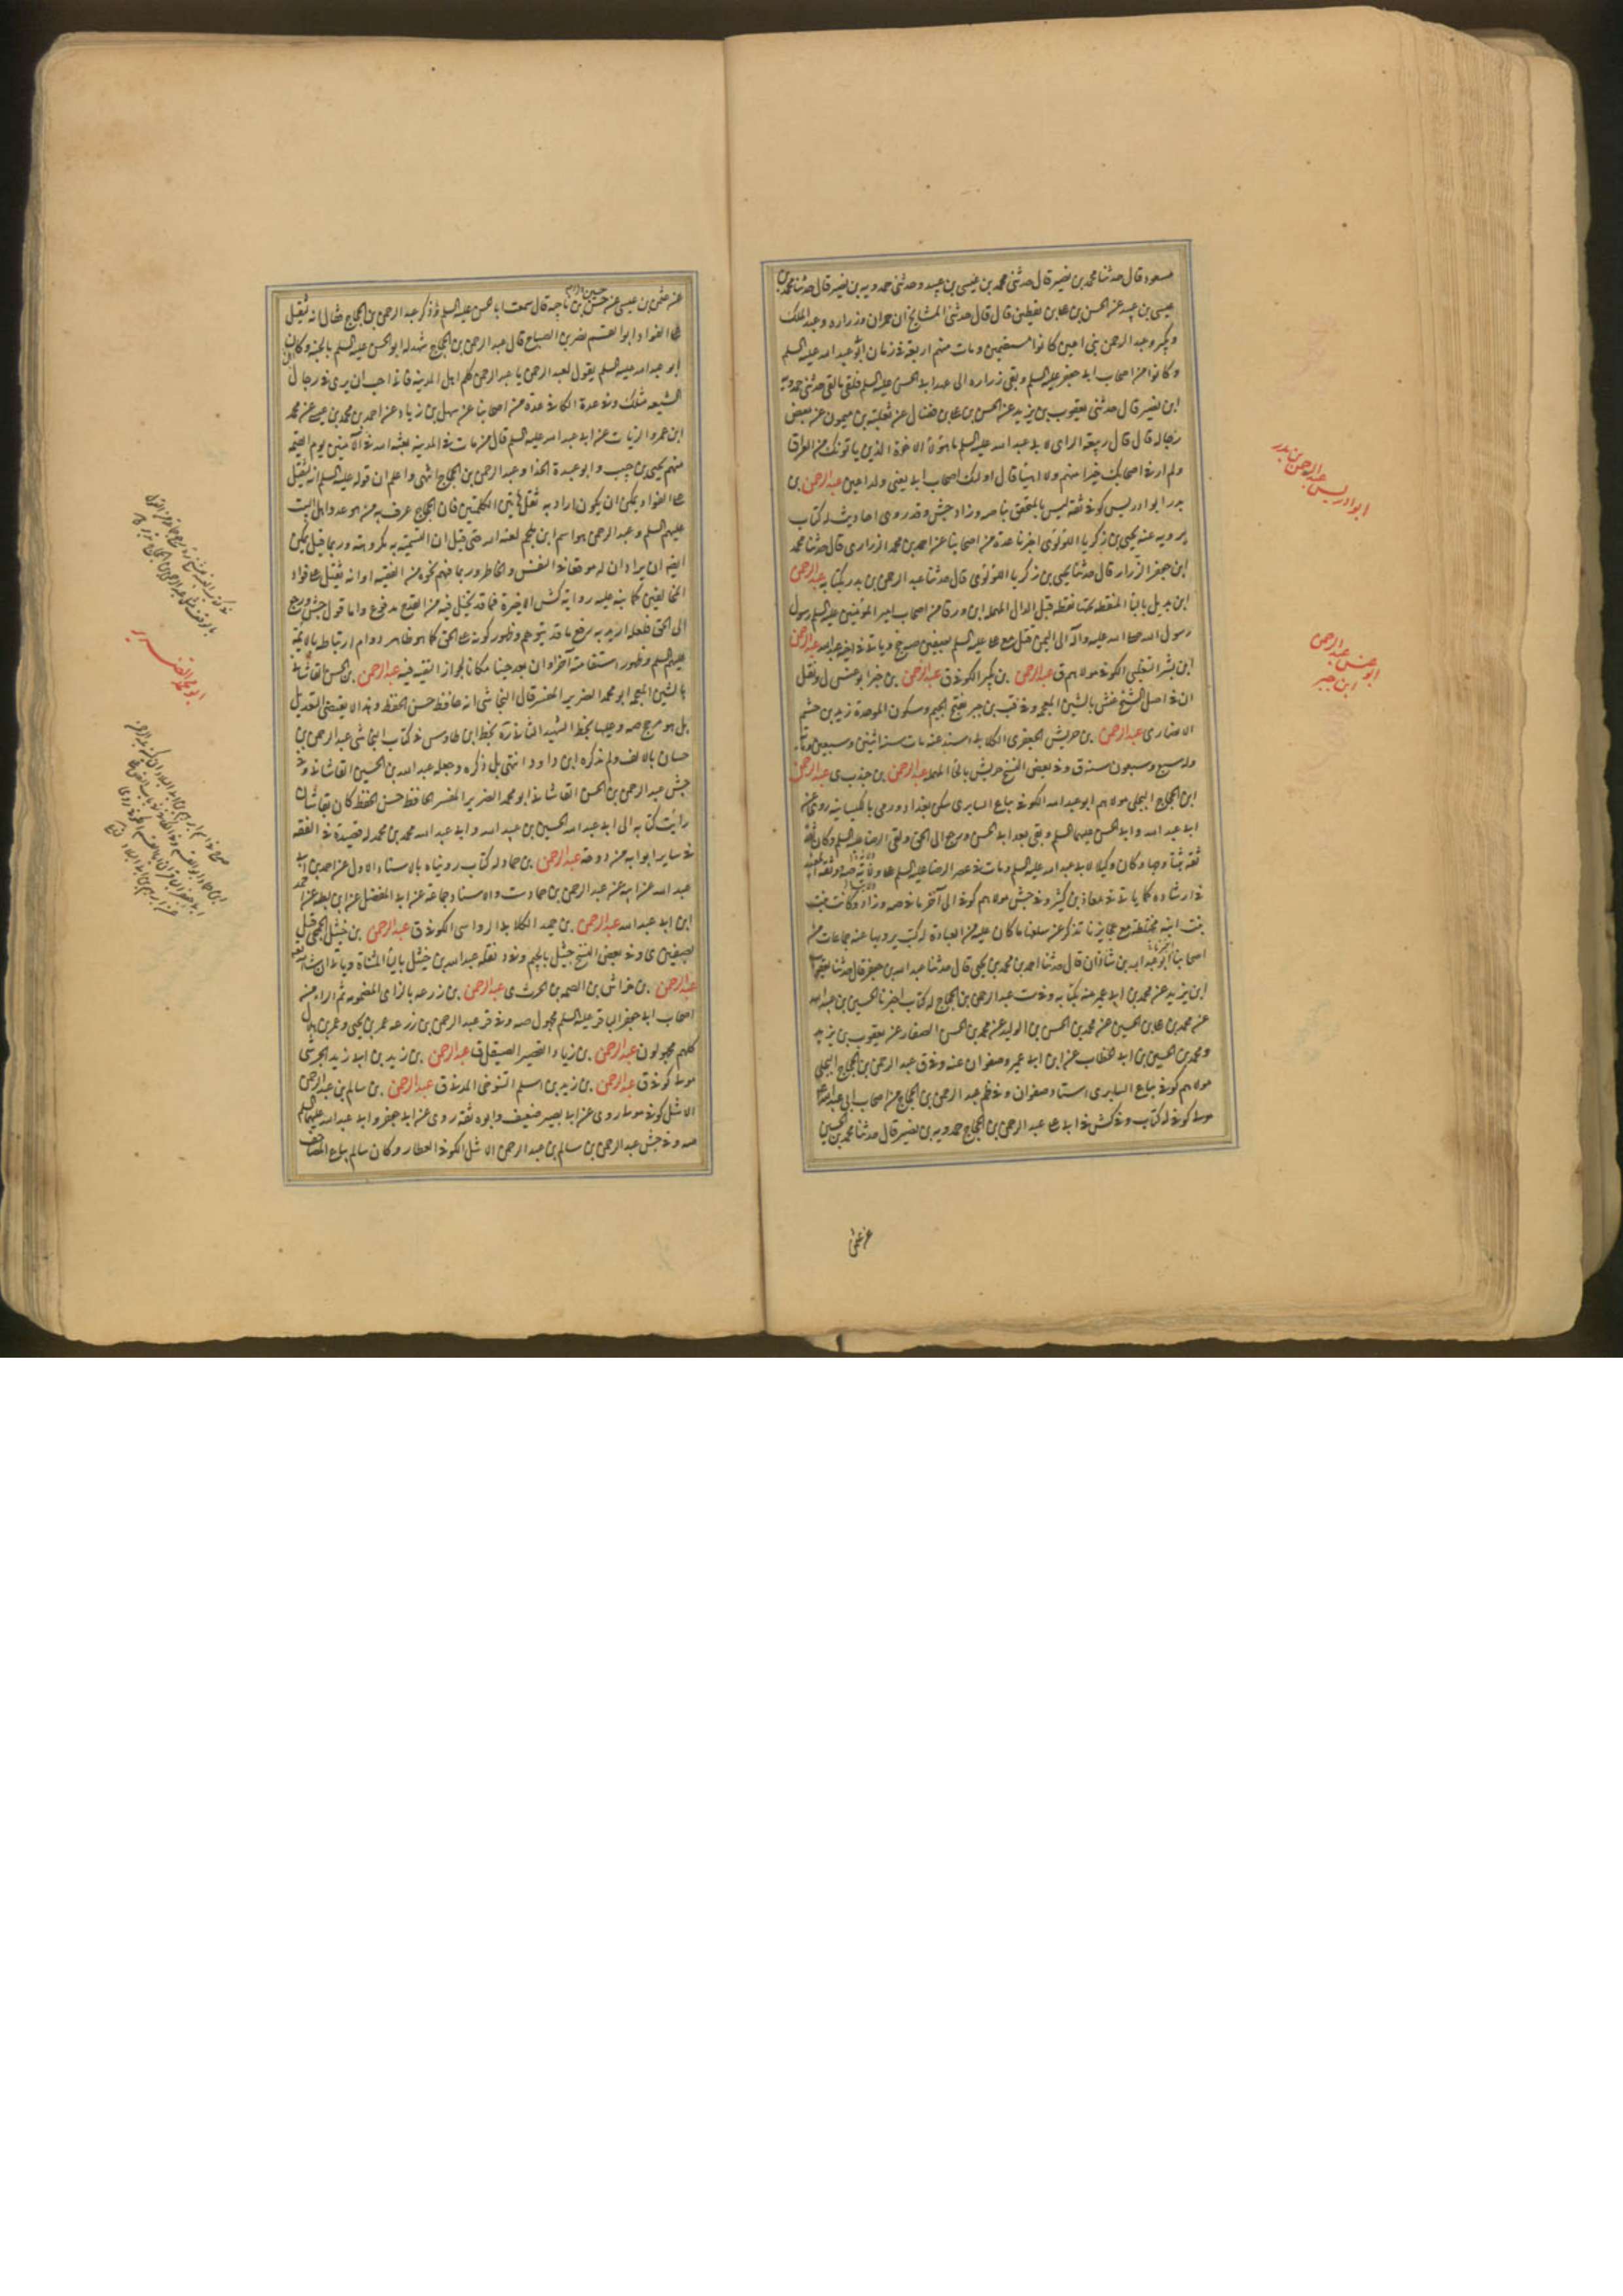 مسعود قال حدثنا محمد بن نصير قال حدثنى محمد بن عيسى بن عبيد وحدثنى حمدويه بن نصير قال حدثنا محمد بن
عيسى بن عبيد عن الحسن بن على بن يقطين قال قال حدثنى المشايخ ان حمران وزراره وعبد الملك
وبكير وعبد الرحمن بنى اعين كانوا مستقيمين ومات منهم اربعة فى زمان ابى عبد الله عليه السلم
وكانوا من اصحاب ابى جعفر عليه السلم وبقى زراره الى عهد ابى الحسن عليه السلم فلقى ما لقى حدثنى حمدويه
ابن نصير قال حدثنى يعقوب بن يزيد عن الحسن بن على بن فضال عن ثعلبة بن ميمون عن بعض
رجاله قال قال ربيعة الراى لابى عبد الله عليه السلم ما هؤلاء الاخوة الذين ياتونك من العراق
ولم ار فى اصحابك خيرا منهم ولا اهيأ قال اولئك اصحاب ابى يعنى ولد اعين عبد الرحمن بن
بدر ابو ادريس كوفى ثقة ليس بالمتحقق بنا صه وزاد جش وقد روى احاديث له كتاب
يرويه عنه يحيى بن زكريا اللؤلؤى اخبرنا عدة من اصحابنا عن احمد بن محمد الزرارى قال حدثنا محمد
ابن جعفر الزرار قال حدثنا يحيى بن زكريا اللؤلؤى قال حدثنا عبد الرحمن بن بدر بكتابه عبد الرحمن
ابن بديل بالباء المنقطة تحتها نقطة قبل الدال المهملة ابن ورقا من اصحاب امير المؤمنين عليه السلم رسول
رسول الله صلى الله عليه وآله الى اليمن قتل مع على عليه السلم بصفين صه جخ وياتى فى اخيه عبد الله عبد الرحمن
ابن بشر التغلبى الكوفى مولاهم ق عبد الرحمن بن بكير الكوفى ق عبد الرحمن بن جبر ابو عبس ل ونقل
ان فى اصل الشيخ عبش بالشين المعجمة وفى قب بن جبر بفتح الجيم وسكون الموحدة زيد بن جشم
الانصارى عبد الرحمن بن حريش الجعفرى الكلابى اسند عنه مات سنة اثنين وسبعين ومائة
وله سبع وسبعون سنة ق وفى بعض النسخ حريش بالحاء المهملة عبد الرحمن بن جندب ى عبد الرحمن
ابن الحجاج البجلى مولاهم ابو عبد الله الكوفى بياع السابرى سكن بغداد ورمى بالكيسانيه روى عن
ابى عبد الله وابى الحسن عليهما السلم وبقى بعد ابى الحسن ورجع الى الحق ولقى الرضا عليه السلم وكان ثقة
ثقة ثبتا وجها وكان وكيلا لابى عبد الله عليه السلم ومات فى عصر الرضا عليه السلم
فى ارشاده كما ياتى فى معاذ بن كثير وفى جش مولاهم كوفى الى آخر ما فى صه وزاد وكانت بنت
بنت ابنه مختلطة مع عجايزنا تذكر عن سلفنا ما كان عليه من العبادة له كتب يرويها عنه جماعات من
اصحابنا اخبرنا ابو عبد الله بن شاذان قال حدثنا احمد بن محمد بن يحيى قال حدثنا عبد الله بن جعفر قال حدثنا يعقوب
ابن يزيد عن محمد بن ابى عمير عنه بكتابه وفى ست عبد الرحمن بن الحجاج له كتاب اخبرنا الحسين بن عبيد الله
عن محمد بن على بن الحسين عن محمد بن الحسن بن الوليد عن محمد بن الحسن الصفار عن يعقوب بن يزيد
ومحمد بن الحسين بن ابى الخطاب عن ابن ابى عمير وصفوان عنه وفى ق عبد الرحمن بن الحجاج البجلى
مولاهم كوفى بياع السابرى استاد صفوان وفى ظم عبد الرحمن بن الحجاج من اصحاب ابى عبد الله
مولى كوفى له كتاب وفى كش فى ابى على عبد الرحمن بن الحجاج حمدويه بن نصير قال حدثنا محمد بن الحسين
عن عثمن
ابو ادريس عبد الرحمن بن بدر
ابو عبس عبد الرحمن
ابن جبر
عن عثمن بن عيسى عن حسن بن ناجية قال سمعت ابا الحسن عليه السلم وذكر عبد الرحمن بن الحجاج فقال انه لثقيل
على الفواد ابو القسم نصر بن الصباح قال عبد الرحمن بن الحجاج شهد له ابو الحسن عليه السلم بالجنة وكان
ابو عبد الله عليه السلم يقول لعبد الرحمن يا عبد الرحمن كلم اهل المدينة فانى احب ان يرى فى رجال
الشيعه مثلك وفى عدة الكافى عدة من اصحابنا عن سهل بن زياد عن احمد بن محمد بن عيسى عن محمد
ابن عمرو الزيات عن ابى عبد الله عليه السلم قال من مات فى المدينة بعثه الله فى الآمنين يوم القيمة
منهم يحيى بن حبيب وابو عبيدة الحذا وعبد الرحمن بن الحجاج انتهى واعلم ان قوله عليه السلم انه لثقيل
على الفواد يمكن ان يكون اراد به ثقل هاتين الكلمتين فان الحجاج عرف به من هو عدو اهل البيت
عليهم السلم وعبد الرحمن هو اسم ابن ملجم لعنه الله حتى قيل ان التسمية به مكروهة وربما قيل يمكن
ايضا ان يراد ان له موقعا فى النفس والخاطر وربما فهم نحوه من الفقيه او انه ثقيل على فواد
المخالفين كما ينبه عليه رواية كش الاخيرة فما قد يتخيل فيه من القدح مدفوع واما قول جش ورجع
الى الحق فلعله اريد به رفع ما قد يتوهم وظهور كونه على الحق كما هو ظاهر دوام ارتباطه بالائمة
عليهم السلم وظهور استقامته آخرا وان بعد جينا مكانا لجواز التقيه فيه عبد الرحمن بن الحسن القاشانى
بالشين المعجمه ابو محمد الضرير المفسر قال النجاشى انه حافظ حسن الحفظ وهذا لا يقتضى التعديل
بل هو مرجح صه وعليها بخط الشهيد الثانى رة بخط ابن طاوس فى كتاب النجاشى عبد الرحمن بن
حسان بالالف ولم يذكره ابن داود انتهى بل ذكره وجعله عبد الله بن الحسين القاشانى وفى
جش عبد الرحمن بن الحسن القاشانى ابو محمد الضرير المفسر الحافظ حسن الحفظ كان بقاشان
رايت كتابه الى ابى عبد الله الحسين بن عبيد الله وابى عبد الله محمد بن محمد له قصيدة فى الفقه
فى ساير ابوابه مزدوجة عبد الرحمن بن حماد له كتاب رويناه بالاسناد الاول عن احمد بن ابى
عبد الله عن ابيه عنه عبد الرحمن بن حماد ست والاسناد جماعة عن ابى المفضل عن ابن بطة عن احمد
ابن ابى عبد الله عبد الرحمن بن حميد الكلابى الرواسى الكوفى ق عبد الرحمن بن خيثل الجمحى قتل
بصفين ى وفى بعض النسخ جثيل بالجيم وفى د نقله عبد الله بن خيثل بالياء المثناة
عبد الرحمن بن خراش بن الصمه بن الحرث ى عبد الرحمن بن زرعه بالزاى المضمومه ثم الراء من
اصحاب ابى جعفر الباقر عليه السلم مجهول صه وفى قر عبد الرحمن بن زرعه عمر بن يحيى وعمر بن هلال
كلهم مجهولون عبد الرحمن بن زياد القصير الصيقل ق عبد الرحمن بن زيد بن ابى زيد الجرشى
مولى كوفى ق عبد الرحمن بن زيد بن اسلم التنوخى المدنى ق عبد الرحمن بن سالم بن عبد الرحمن
الاشل كوفى مولى روى عن ابى بصير ضعيف وابوه ثقة روى عن ابى جعفر وابى عبد الله عليهما السلم
صه وفى جش عبد الرحمن بن سالم بن عبد الرحمن الاشل الكوفى العطار وكان سالم بياع المصاحف
ابو محمد الضرير